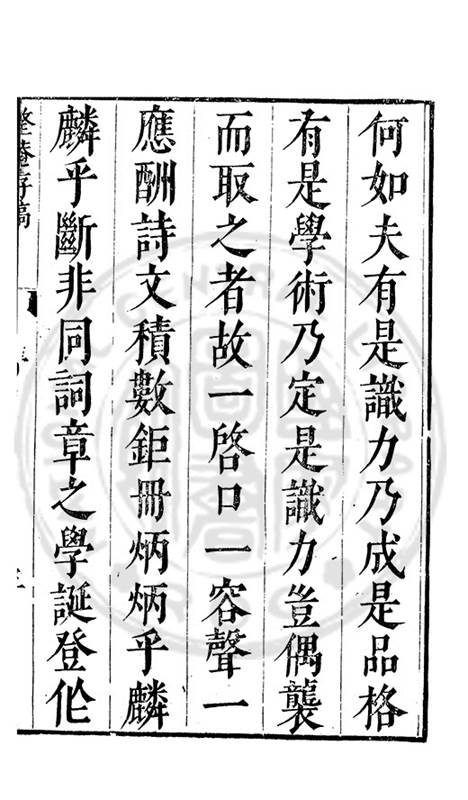 何如夫有是識力乃成是品格
有是學術乃定是識力豈偶襲
而取之者故一啓口一容聲一
應酬詩文積數鉅冊炳炳乎麟
麟乎斷非同詞章之學誕登伦
整菴存稿